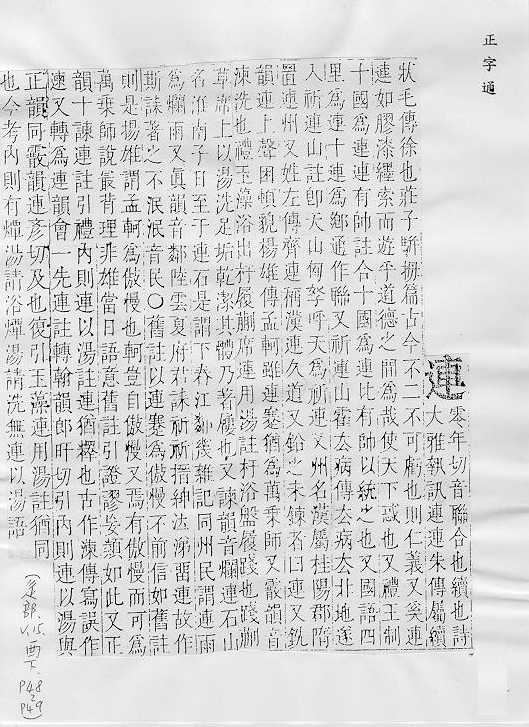 正字通
連 零年切音聯合也續也詩
大雅執訊連連朱傳屬續
狀毛傳徐也莊子騈拇篇古今不二不可虧也則仁義又奚連
連如膠漆纆索而遊乎道德之閒爲哉使天下惑也又禮王制
十國爲連連有帥註合十國爲連比有帥以統之也又國語四
里爲連十連爲鄉通作聯又祈連山霍去病傳去病去北地遂
入祈連山註卽天山匈孥呼天爲祈連又州名漢屬桂陽郡隋
置連州又姓左傳齊連稱漢連久道又鉛之未鍊者曰連又銑
韻連上聲困頓貌揚雄傳孟軻雖連蹇猶爲萬乗師又霰韻音
湅洗也禮玉藻浴出杅履蒯席連用湯註杅浴盤履踐也踐蒯
草席上以湯洗足垢乾潔其體乃著屨也又諫韻音爛連石山
名淮南子日至于連石是謂下舂江鄰幾雜記同州民謂連雨
爲爛雨又眞韻音鄰陸雲夏府君誄祈祈搢紳達涕畱連故作
斯誄著之不泯泯音民○舊註以連蹇爲傲慢不前信如舊註
則是揚雄謂孟軻爲傲慢也軻豈自傲慢又焉有傲慢而可爲
萬乗師說最背理非雄當日語意舊註引證謬妄類如此又正
韻十諫連註引禮內則連以湯註連猶釋也古作湅傳寫誤作
連又轉爲連韻會一先連註轉翰韻郎旰切引內則連以湯與
正韻同霰韻連彦切及也復引玉藻連用湯註猶同
也今考內則有燂湯請浴燂湯請洗無連以湯語
(辵部.
V.15.酉下.
P48
P49)